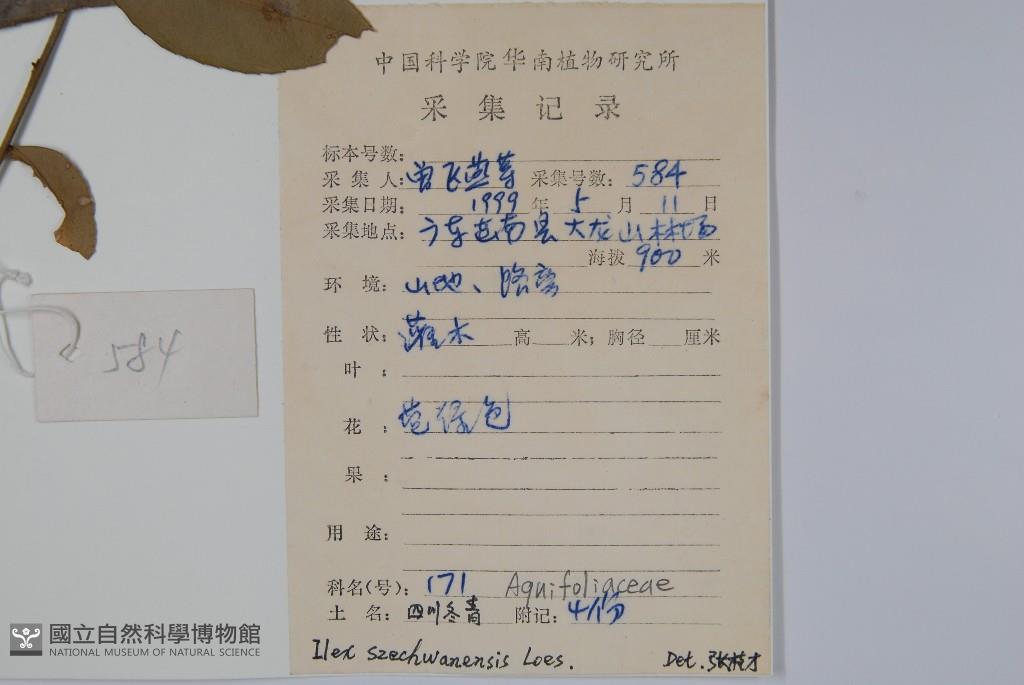 中国科学院华南植物研究所
采集记录
标本号数:
采集人:曾飞燕等 采集号数: 584
采集日期: 1999 年 5 月 11 日
采集地点: 广东连南县大龙山林场
海拔 900 米
环境: 山地、路旁
性状: 灌木 高 米; 胸径 厘米
叶:
花: 苞绿色
果:
用途:
科名(号): 171 Aquifoliaceae
土名: 四川冬青 附记: 4份
Ilex szechwanensis Loes. Det.
584
國立自然科學博物館
NATIONAL MUSEUM OF NATURAL SCIENCE